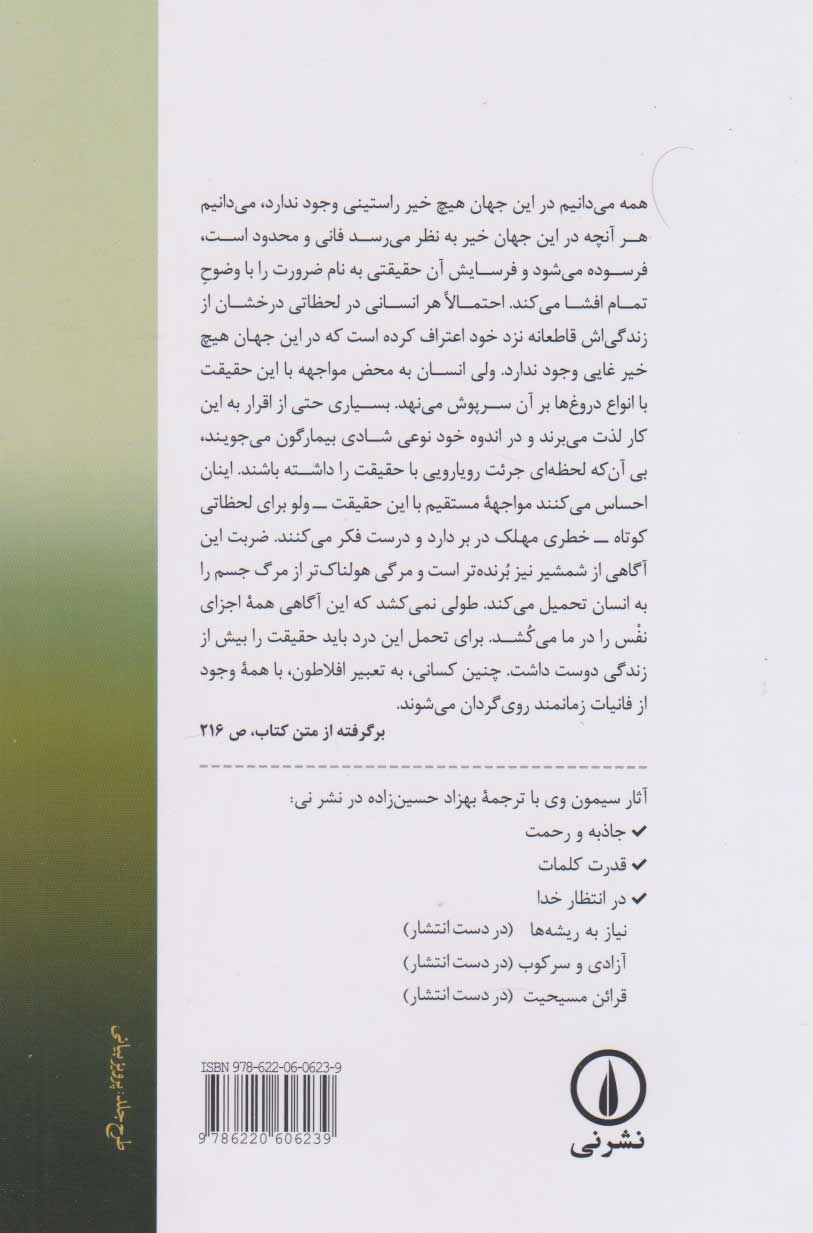 همه می‌دانیم در این جهان هیچ خیر راستینی وجود ندارد، می‌دانیم
هر آنچه در این جهان خیر به نظر می‌رسد فانی و محدود است،
فرسوده می‌شود و فرسایش آن حقیقتی به نام ضرورت را با وضوحِ
تمام افشا می‌کند. احتمالاً هر انسانی در لحظاتی درخشان از
زندگی‌اش قاطعانه نزد خود اعتراف کرده است که در این جهان هیچ
خیر غایی وجود ندارد. ولی انسان به محض مواجهه با این حقیقت
با انواع دروغ‌ها بر آن سرپوش می‌نهد. بسیاری حتی از اقرار به این
کار لذت می‌برند و در اندوه خود نوعی شادی بیمارگون می‌جویند،
بی آن‌که لحظه‌ای جرئت رویارویی با حقیقت را داشته باشند. اینان
احساس می‌کنند مواجههٔ مستقیم با این حقیقت ــ ولو برای لحظاتی
کوتاه ــ خطری مهلک در بر دارد و درست فکر می‌کنند. ضربت این
آگاهی از شمشیر نیز بُرنده‌تر است و مرگی هولناک‌تر از مرگ جسم را
به انسان تحمیل می‌کند. طولی نمی‌کشد که این آگاهی همهٔ اجزای
نفْس را در ما می‌کُشد. برای تحمل این درد باید حقیقت را بیش از
زندگی دوست داشت. چنین کسانی، به تعبیر افلاطون، با همهٔ وجود
از فانیات زمانمند روی‌گردان می‌شوند.
برگرفته از متن کتاب، ص ۲۱۶
آثار سیمون وی با ترجمهٔ بهزاد حسین‌زاده در نشر نی:
✓ جاذبه و رحمت
✓ قدرت کلمات
✓ در انتظار خدا
نیاز به ریشه‌ها (در دست انتشار)
آزادی و سرکوب (در دست انتشار)
قرائن مسیحیت (در دست انتشار)
ISBN 978-622-06-0623-9
9 786220 606239
نشرنی
طرح جلد: پرویز بیانی